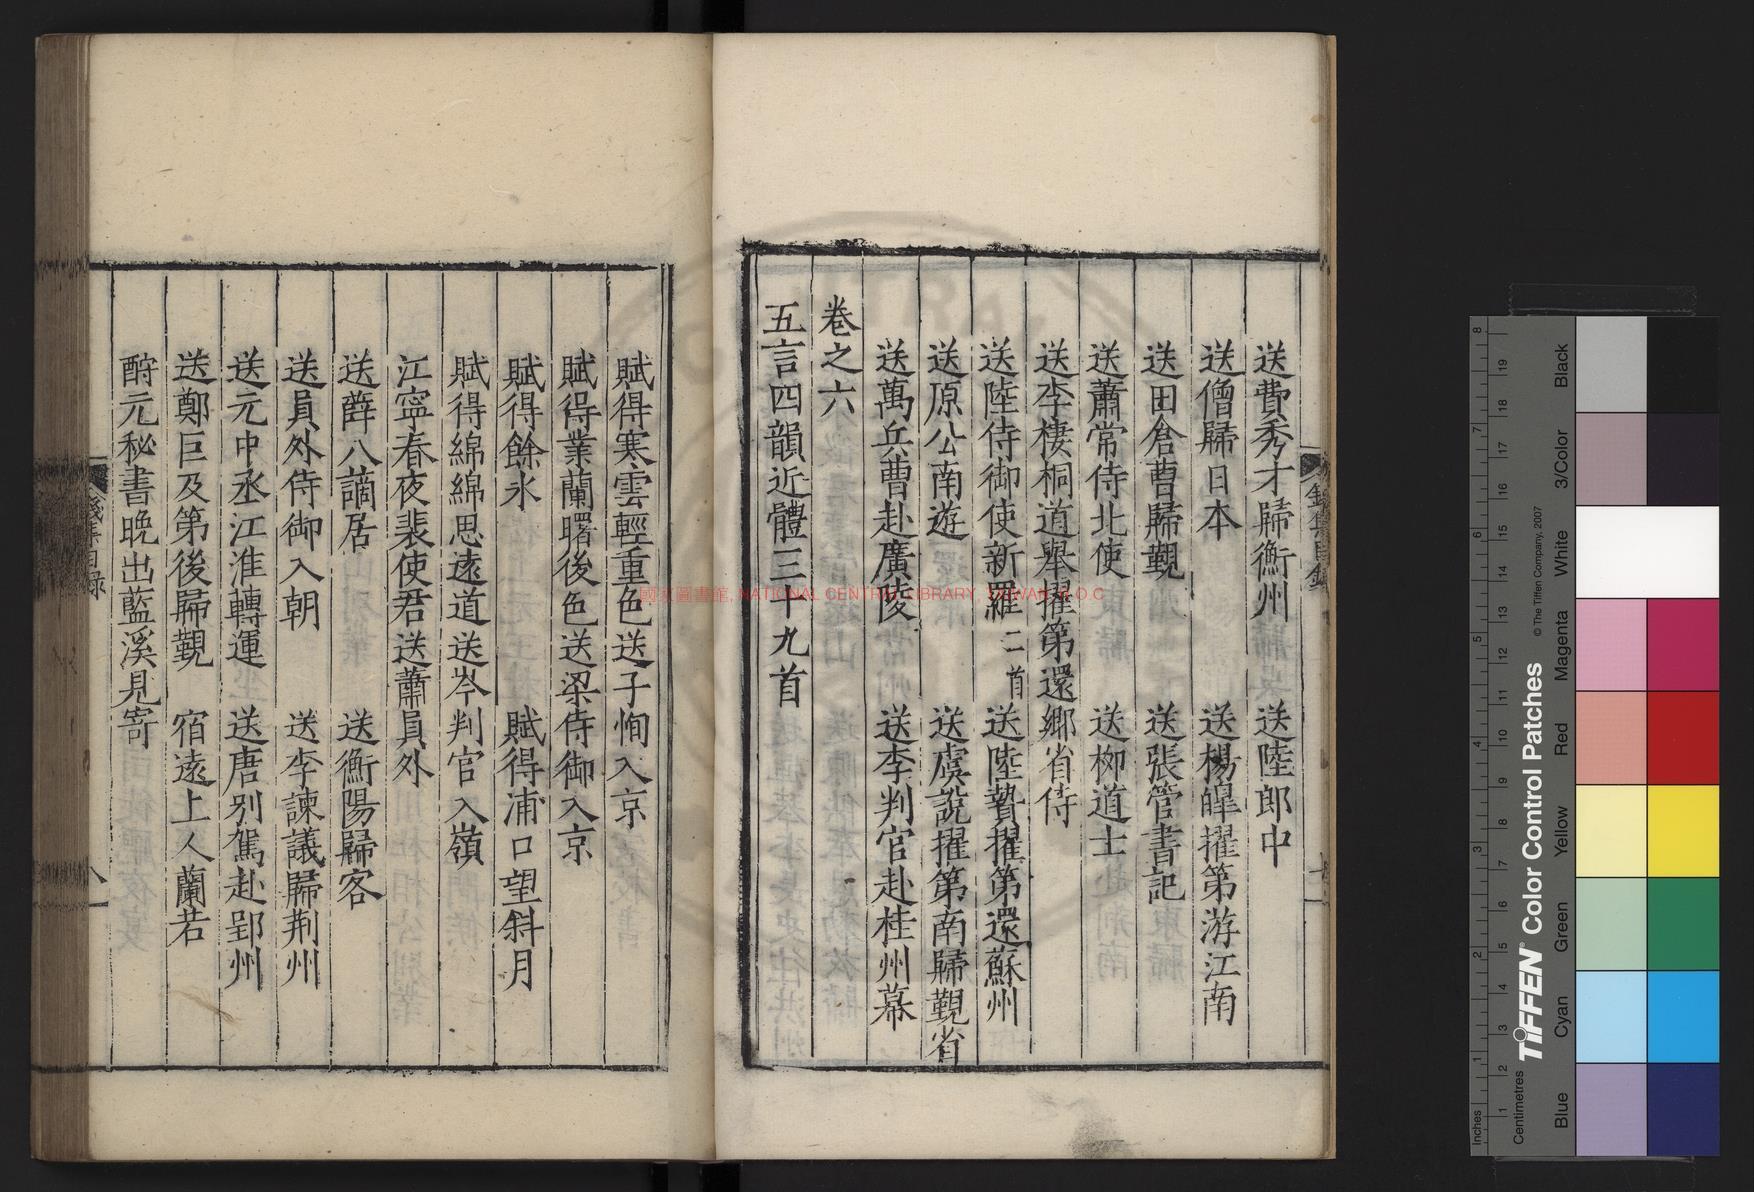 送費秀才歸衡州　送陸郎中
送僧歸日本　送楊皥擢第游江南
送田倉曹歸覲　送張管書記
送蕭常侍北使　送柳道士
送李棲桐道舉擢第還鄉省侍
送陸侍御使新羅二首　送陸贄擢第還蘇州
送原公南遊　送虞說擢第南歸覲省
送萬兵曹赴廣陵　送李判官赴桂州幕
卷之六
五言四韻近體三十九首
賦得寒雲輕重色送子恂入京
賦得業蘭曙後色送梁侍御入京
賦得餘氷　賦得浦口望斜月
賦得綿綿思遠道送岑判官入嶺
江寧春夜裴使君送蕭員外
送薛八謫居　送衡陽歸客
送員外侍御入朝　送李諫議歸荆州
送元中丞江淮轉運　送唐別駕赴郢州
送鄭巨及第後歸覲　宿遠上人蘭若
酧元秘書晚出藍溪見寄
錢集目錄
八
國家圖書館, NATIONAL CENTRAL LIBRARY, TAIWAN, R.O.C
TIFFEN® Color Control Patches
© The Tiffen Company, 2007
Centimetres
Inches
Blue
Cyan
Green
Yellow
Red
Magenta
White
3/Color
Black